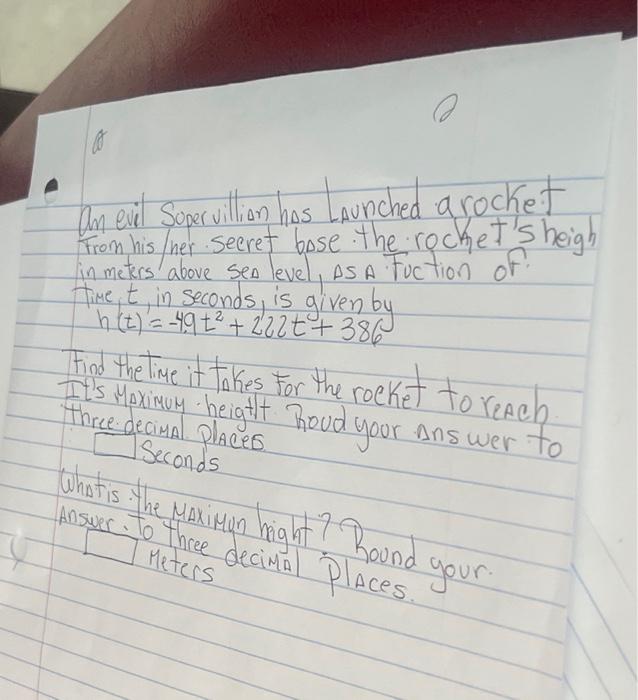 2
An evil Sopervillian has Launched a rocket
from his/her secret base. the rocket's heigh
in meters above sea level, as a fuction of
time, t, in seconds, is given by
h(t) = -4.9t² + 222t + 386
Find the time it takes for the rocket to reach
It's maximum heigtlt. Roud your answer to
three decimal places
Seconds
What is the maximun hight? Round your
answer to three decimal places.
Meters